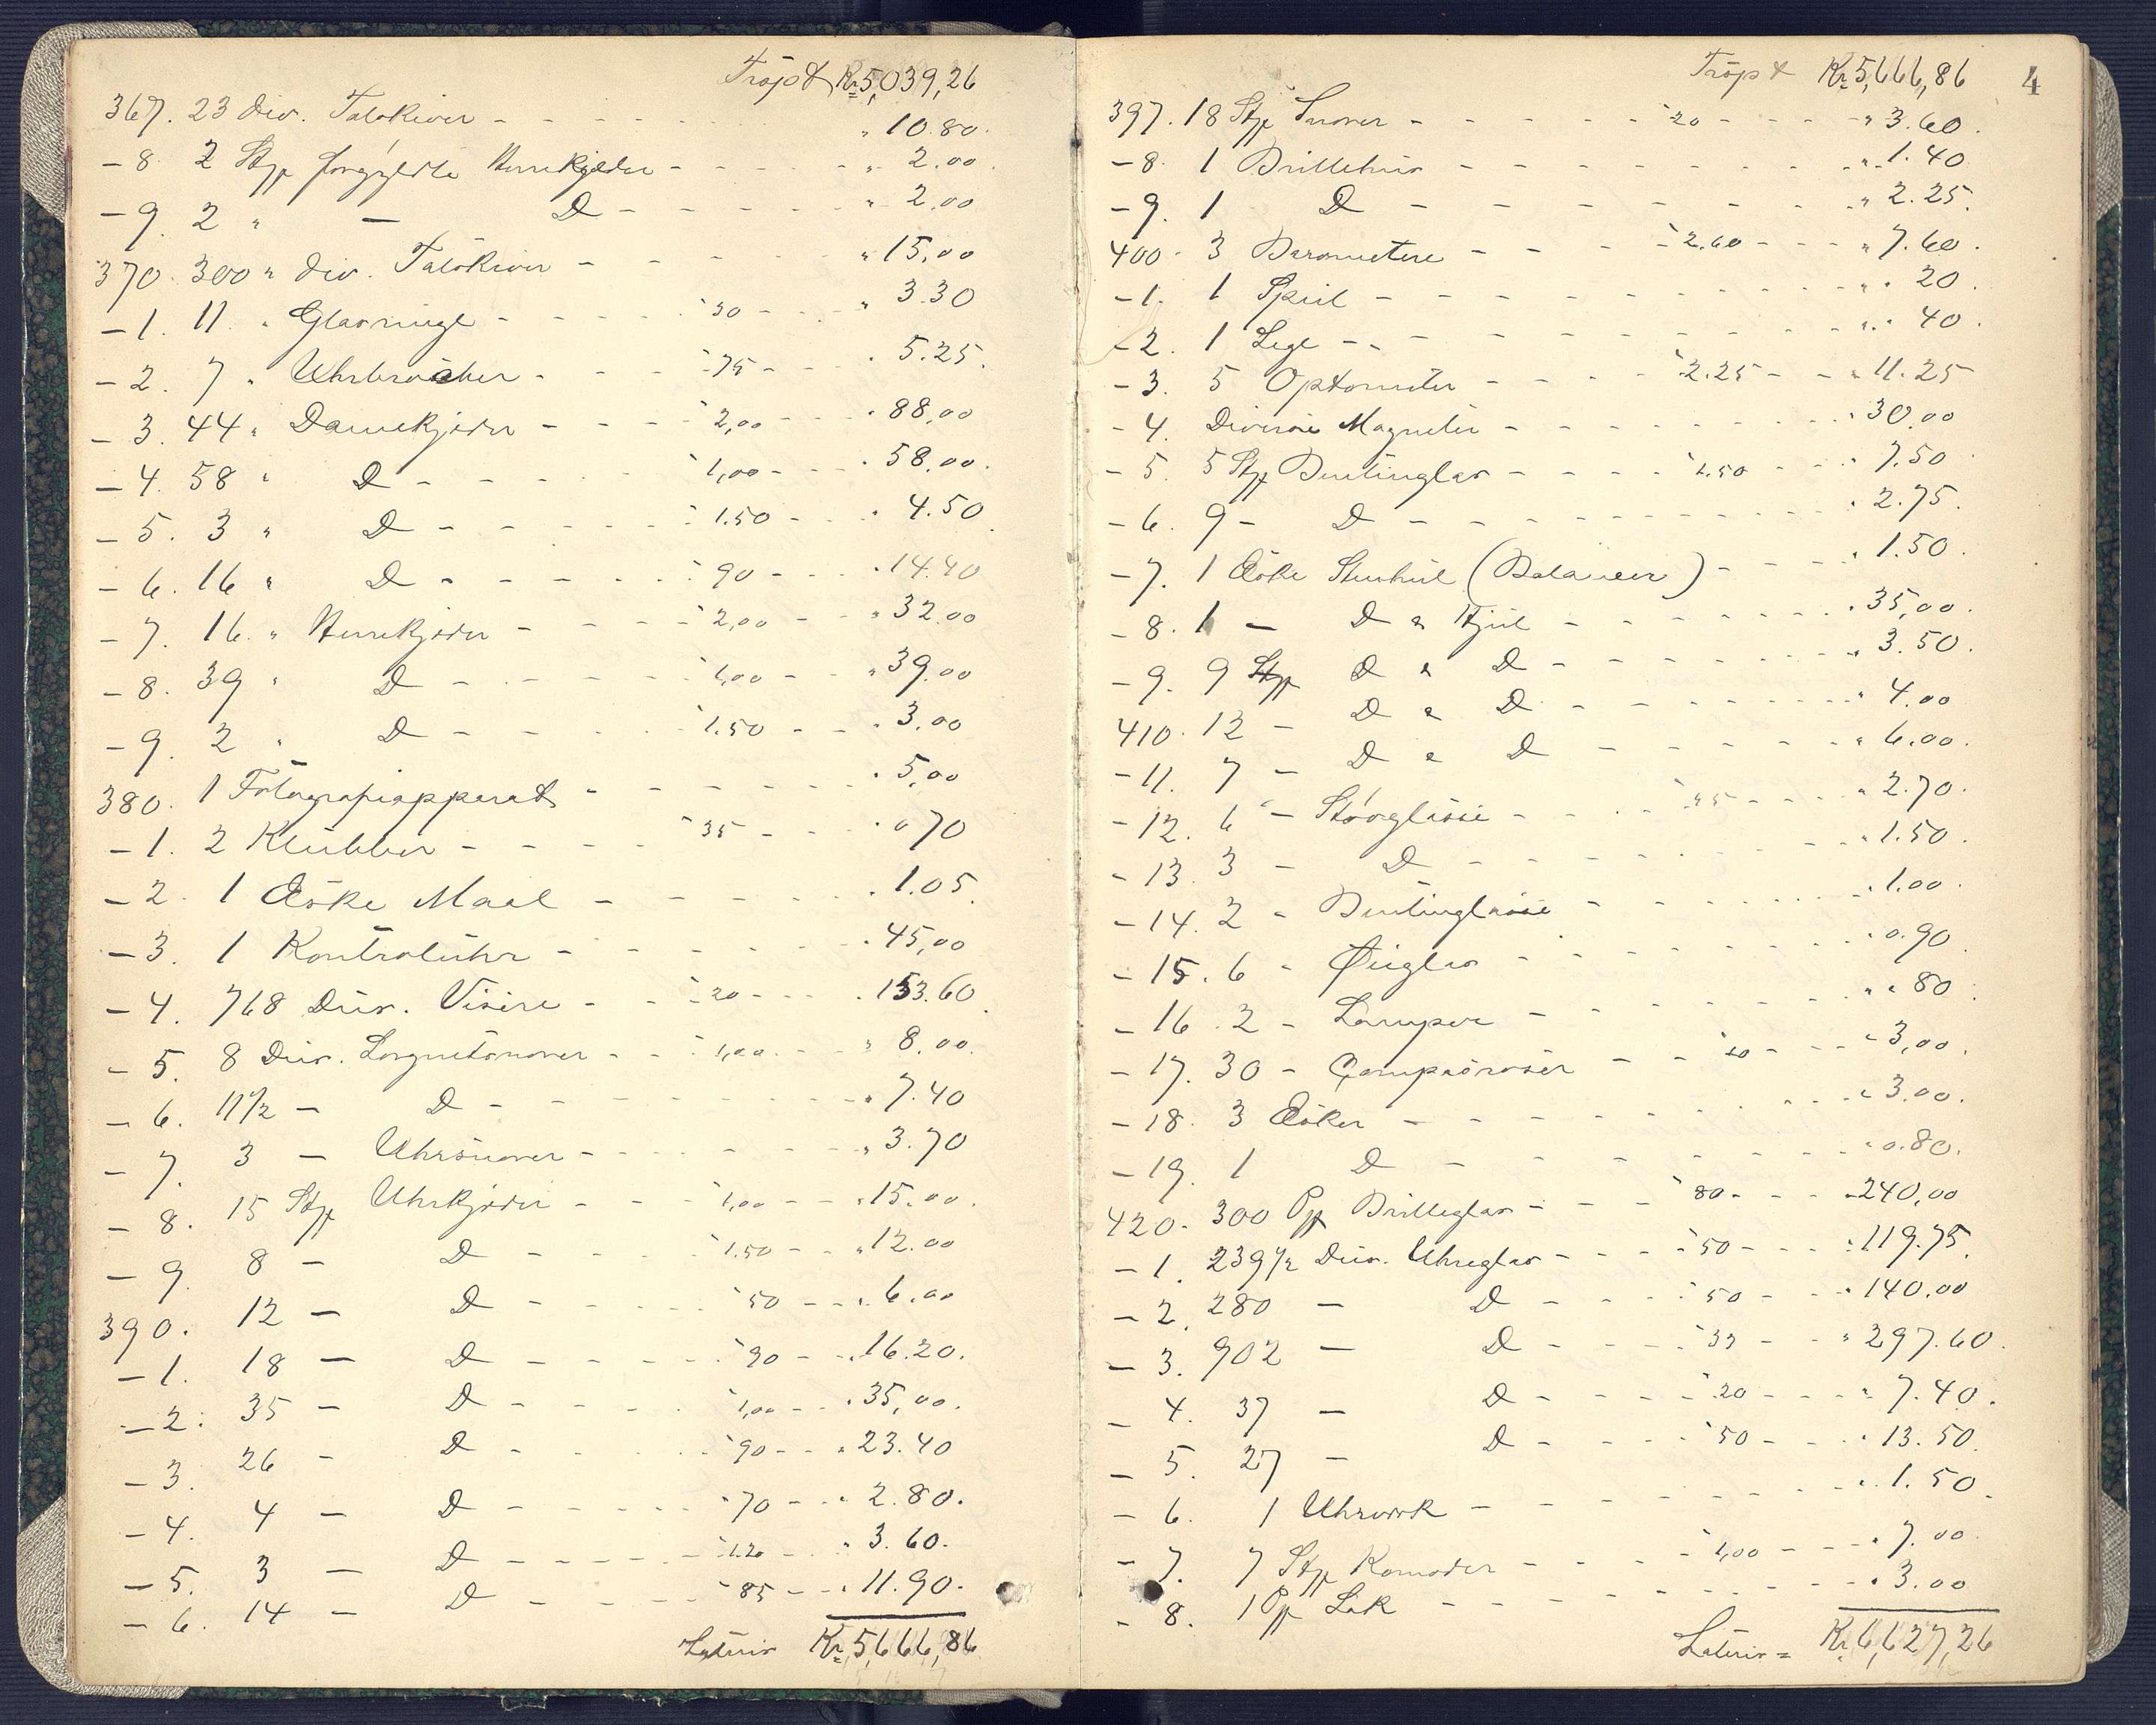 Trsp t Kr 5,039,26
367. 23 div. Talskiver - - - - " 10.80.
- 8. 2 Stp forgyldte Herrekjeder - - - - " 2.00
- 9. 2 " — D - - - - " 2.00
370. 300 " div. Talskiver - - - - " 15,00
- 1. 11 " Glasringe - - - - " 30 - - - " 3.30
- 2. 7 " Uhrbrocher - - - " 75 - - " 5.25.
- 3. 44 " Damekjeder - - - - " 2,00 - - - " 88,00
- 4. 58 " D - - - - " 1,00 - - - " 58.00.
- 5. 3 " D - - - - " 1.50 - - " 4.50.
- 6. 16 " D - - - - " 90 - - - " 14.40
- 7. 16 " Herrekjeder - - - - " 2,00 - - " 32.00
- 8. 39 " D - - - - " 1,00 - - " 39.00
- 9. 2 " D - - - - " 1.50 - - " 3.00
380. 1 Fotografiapparat - - - - " 5,00
- 1. 2 Klubber - - - - " 35 - - - " 0 70
- 2. 1 Æske Maal - - - - " 1.05.
- 3. 1 Kontroluhr - - - - " 45,00
- 4. 768 Dus. Visere - - " 20 - - - " 153.60.
- 5. 8 Dus. Lorgnetsnorer - - " 1,00 - - " 8.00.
- 6. 11½ — D - - - - " 7.40
- 7. 3 — Uhrsnorer - - - - " 3.70
- 8. 15 Stp Uhrkjeder - - " 1,00 - - " 15.00.
- 9. 8 — D - - - - " 1.50 - - " 12.00
390. 12 — D - - - - " 50 - - " 6.00
- 1. 18 — D - - - - " 90 - - " 16.20.
- 2. 35 — D - - - - " 1,00 - - " 35,00.
- 3. 26 - D - - - - " 90 - - " 23.40
- 4. 4 — D - - - - " 70 - - " 2.80.
- 5. 3 — D - - - - " 1.20 - - " 3.60.
- 6. 14 — D - - - - " 85 - - " 11.90.
Lateris Kr 5,666,86
Trsp t Kr 5,666,86 4
397. 18 Stp Snorer - - - - " 20 - - - " 3.60.
- 8. 1 Brillehus - - - - " 1.40
- 9. 1 D - - - - " 2.25.
400. 3 Barometere - - - " 2.60 - - - " 7.60.
- 1. 1 Speil - - - - " " 20.
- 2. 1 Lege - - - - " " 40.
- 3. 5 Optometer - - - - " 2.25 - - " 11.25
- 4. Diverse Magneter - - - - " 30.00
- 5. 5 Stp Buttinglas - - - - " 1.50 - - " 7.50
- 6. 9 - D - - - - " 2.75.
- 7. 1 Æske Stenhul (Balancer) - - - - " 1.50.
- 8. 1 — D " Hjul - - - - " 35,00.
- 9. 9 Stp D " D - - - - " 3.50.
410. 12 — D " D - - - - " 4.00
- 11. 7 — D " D - - - - " 6.00.
- 12. 6 " — Støvglasse - - - " 45 - - - " 2.70.
- 13. 3 — D - - - - " 1.50.
- 14. 2 - Buttinglasse - - - - " 1.00.
- 15. 6 - Øieglas - - - - " 0.90.
- 16. 2 - Lamper - - - - " " 80.
- 17. 30 - Compasroser - - " 10 - - - " 3,00.
- 18. 3 Æsker - - - - " 3.00.
- 19. 1 D - - - - " 0.80.
420. 300 Pp Brilleglas - - - " 80 - - - " 240,00
- 1. 239½ Dus. Uhreglas - - - - " 50 - - - " 119.75.
- 2. 280 — D - - - - " 50 - - " 140.00
- 3. 902 — D - - - - " 33 - - " 297.60.
- 4. 37 — D - - - - " 20 - - - " 7.40.
- 5. 27 — D - - - - " 50 - - " 13.50.
- 6. 1 Uhrværk - - - - " 1.50.
- 7. 7 Stp Komoder - - - " 1,00 - - - " 7.00.
- 8. 1 Pp Lak - - - - " 3.00
Lateris = Kr 6,627,26